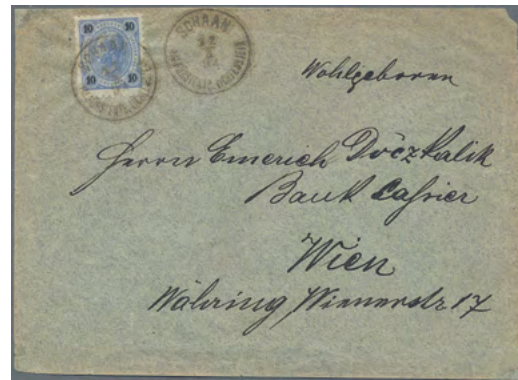 10 10
10 10
SCHAAN
Wohlgeboren
Herrn Emerich Döczkalik
Bank Cassier
Wien
Währing, Wienerstr 17